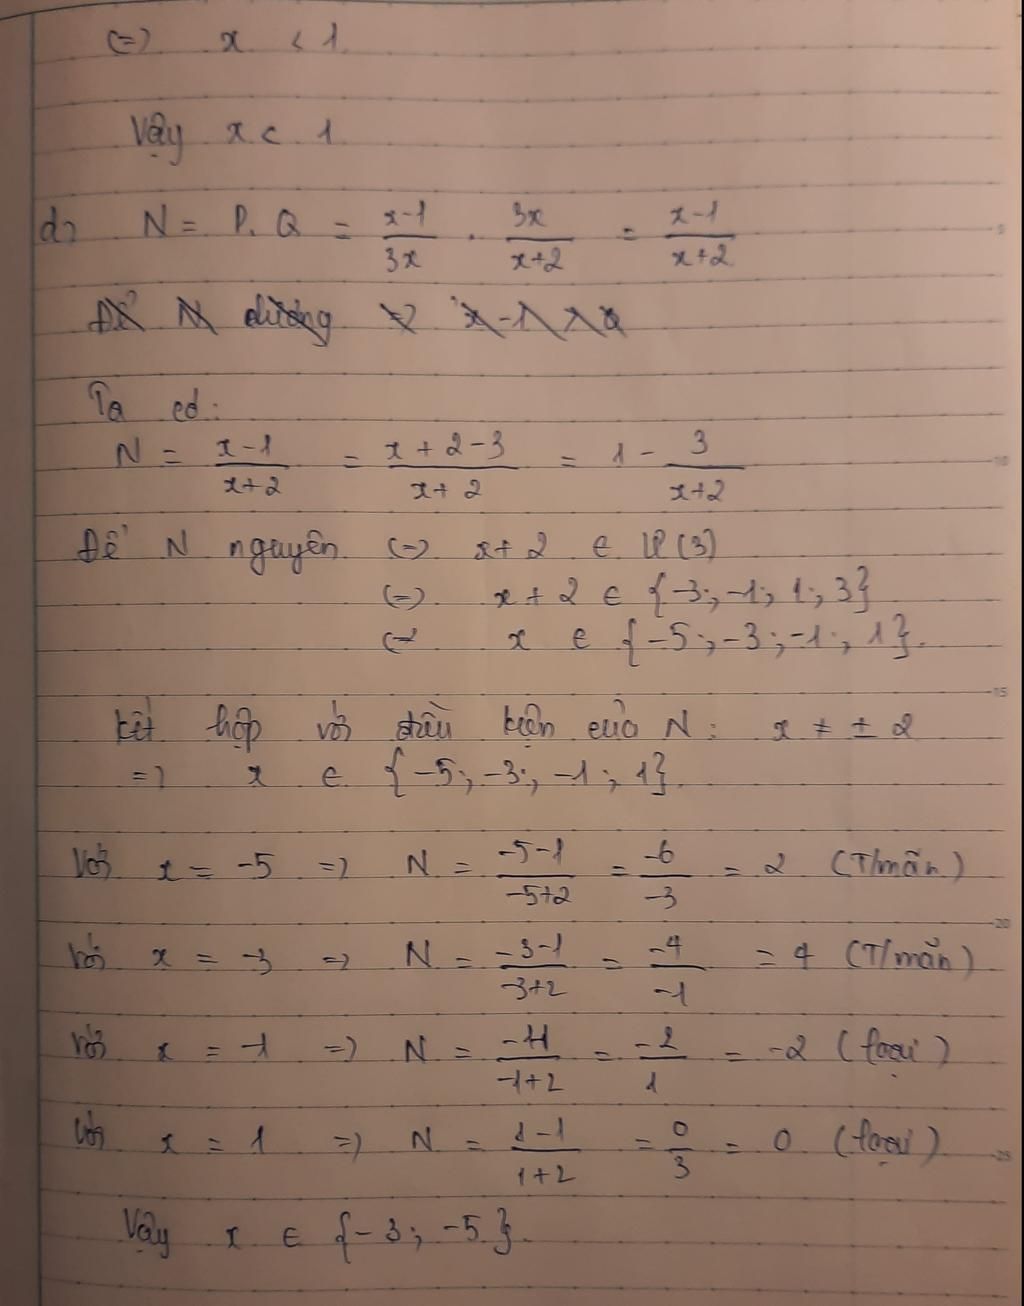 <=> x < 1
Vậy x < 1
d> N = P. Q = x-1/3x . 3x/x+2 = x-1/x+2
Để N dương => x-1 > 0
Ta có:
N = x-1/x+2 = x+2-3/x+2 = 1 - 3/x+2
Để N nguyên <=> x+2 ∈ Ư(3)
<=> x+2 ∈ {-3; -1; 1; 3}
<=> x ∈ {-5; -3; -1; 1}.
Kết hợp với điều kiện của N: x ≠ ± 2
=> x ∈ {-5; -3; -1; 1}.
Với x = -5 => N = -5-1/-5+2 = -6/-3 = 2 (T/mãn)
Với x = -3 => N = -3-1/-3+2 = -4/-1 = 4 (T/mãn)
Với x = -1 => N = -1-1/-1+2 = -2/1 = -2 (loại)
Với x = 1 => N = 1-1/1+2 = 0/3 = 0 (loại)
Vậy x ∈ {-3; -5}.